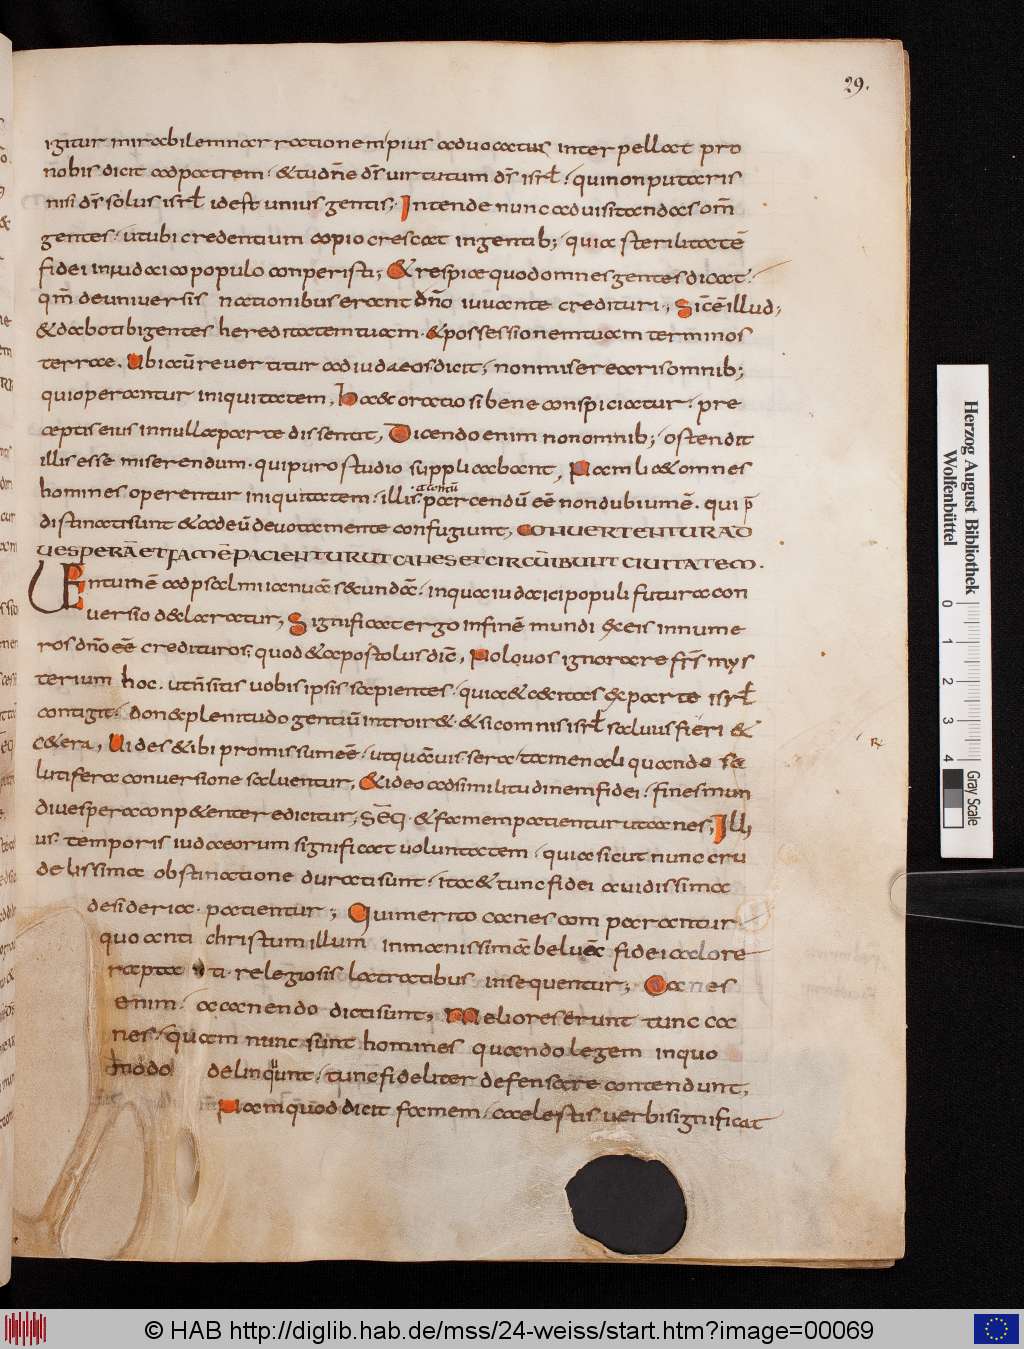 29.
igitur mirabilem narrationem pius aduocatus interpellat pro
nobis dicit ad patrem. & tu dñe ds̄ uirtutum ds̄ isrl̄. qui non putaris
nisi ds̄ solus isrl̄ id est unius gentis. Intende nunc ad uisitandas om̄
gentes. ut ubi credentium copio crescat in gentib; quia sterilitatē
fidei in iudaico populo conperisti; & respice quod omnes gentes dicat.
qm̄ de uniuersis nationibus erant dño iuuante credituri. Sic ē illud
& dabo tibi gentes hereditatem tuam. & possessionem tuam terminos
terrae. Ubi cū reuertitur ad iudaeos dicit. non miserearis omnib;
qui operantur iniquitatem. Haec oratio si bene conspiciatur. pre
ceptis eius in nulla parte dissentit. Dicendo enim non omnib; ostendit
illis esse miserendum. qui puro studio supplicabant. Nam licet omnes
homines operentur iniquitatem. illis parcendū eē non dubium ē. qui p̄
distincti sunt & ad deū deuota mente confugiunt. CONUERTENTUR AD
UESPERĀ ET FAMĒ PACIENTUR UT CANES ET CIRCŪIBUNT CIUITATEM.
Uentum ē ad psalmi ianuā secundā. in qua iudaici populi futura con
uersio declaratur; Significat ergo in fine mundi ex eis innume
ros dño eē credituros; quod & apostolus dic̄. Nolo uos ignorare frs̄ mys
terium hoc. ut n̄ sitis uobis ipsis sapientes. quia & cecitas ex parte isrl̄
contigit. donec plenitudo gentiū introir&. & sic omnis isrl̄ saluus fieri &
c&era. Uides & ibi promissum eē. ut quāuis sera tamen aliquando sa
lutifera conuersione saluentur. & ideo ad similitudinem fidei. fines mun
di uespera conp&enter edicitur; SEQ̄. & famem patientur ut canes; Illi
us temporis iudaeorum significat uoluntatem. quia sicut nunc cru
delissima obstinatione durati sunt. ita & tunc fidei auidissima
desideria patientur; Qui merito canes comparantur.
quo anti christum illum inmanissimā beluā fidei calore
rapta ti religiosis latratibus insequentur; Canes
enim. a canendo dicti sunt; Meliores erunt tunc ca
nes. quam nunc sunt homines quando legem inquo
modo delinquunt. tunc fideliter defensare contendunt.
Nam quod dicit famem. caelestis uerbi significat
Herzog August Bibliothek
Wolfenbüttel
0 1 2 3 4 Gray Scale
© HAB http://diglib.hab.de/mss/24-weiss/start.htm?image=00069